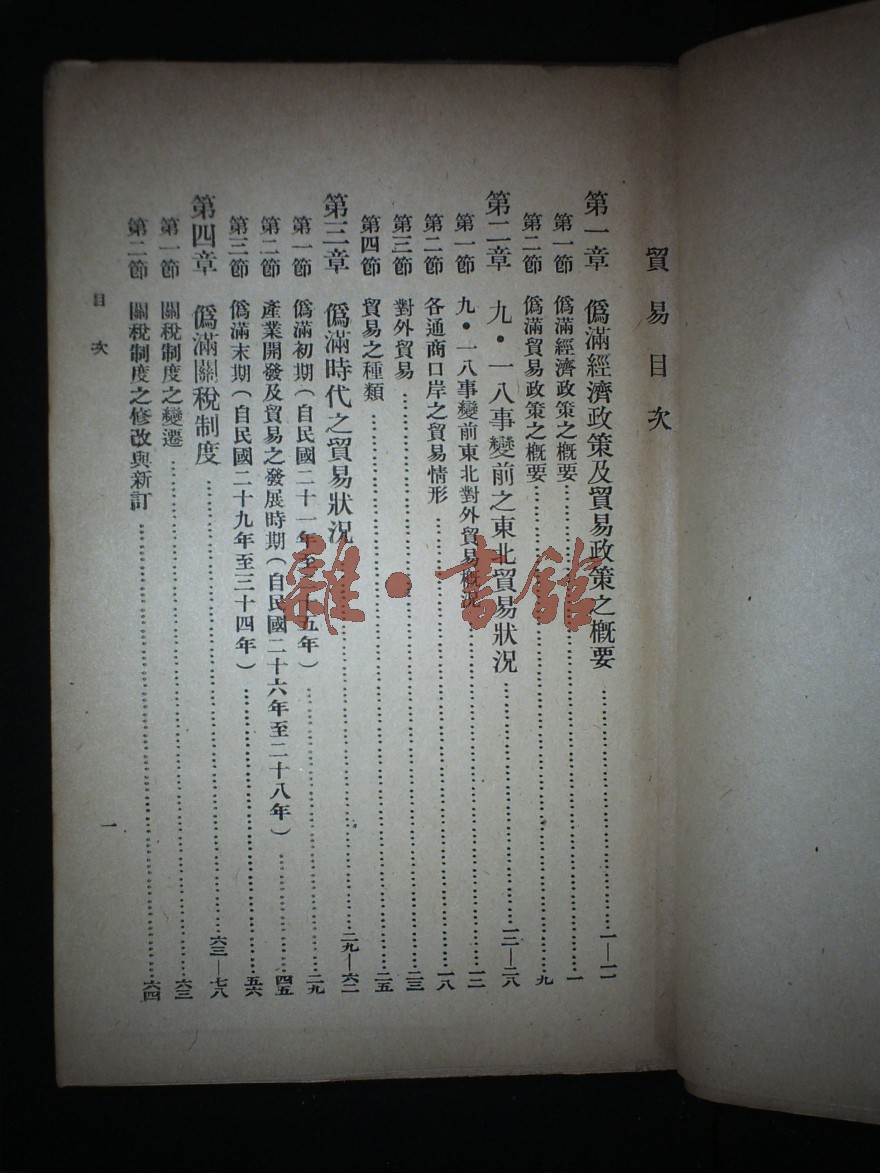 貿易目次
第一章 僞滿經濟政策及貿易政策之槪要……一—一一
第一節 僞滿經濟政策之槪要……一
第二節 僞滿貿易政策之槪要……九
第二章 九・一八事變前之東北貿易狀況……一二—二八
第一節 九・一八事變前東北對外貿易槪況……一二
第二節 各通商口岸之貿易情形……一八
第三節 對外貿易……二三
第四節 貿易之種類……二五
第三章 僞滿時代之貿易狀況……二九—六二
第一節 僞滿初期(自民國二十一年至十五年)……二九
第二節 產業開發及貿易之發展時期(自民國二十六年至二十八年)……四五
第三節 僞滿末期(自民國二十九年至三十四年)……五六
第四章 僞滿關稅制度……六三—七八
第一節 關稅制度之變遷……六三
第二節 關稅制度之修改與新訂……六四
目次
一
雜・書館